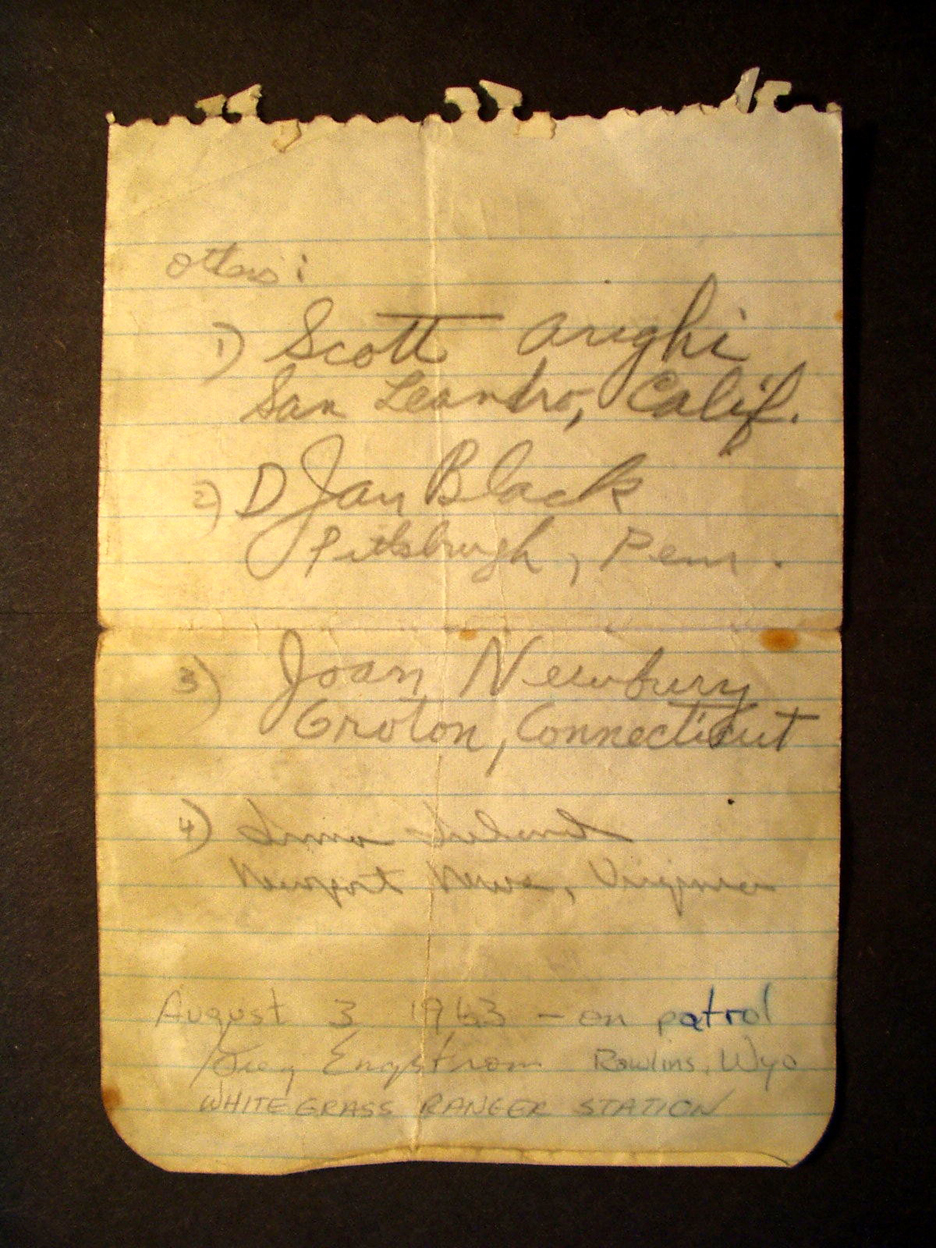 others:
1) Scott Arighi
San Leandro, Calif.
2) D Jay Black
Pittsburgh, Penn.
3) Joan Newbury
Groton, Connecticut
4)
Newport News, Virginia
August 3 1963 – on patrol
Greg Engstrom Rawlins, Wyo
WHITE GRASS RANGER STATION